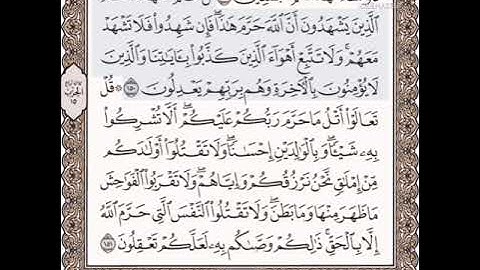 ٱلَّذِينَ يَشْهَدُونَ أَنَّ ٱللَّهَ حَرَّمَ هَٰذَاۖ فَإِن شَهِدُوا۟ فَلَا تَشْهَدْ
مَعَهُمْۚ وَلَا تَتَّبِعْ أَهْوَآءَ ٱلَّذِينَ كَذَّبُوا۟ بِـَٔايَٰتِنَا وَٱلَّذِينَ
لَا يُؤْمِنُونَ بِٱلْـَٔاخِرَةِ وَهُم بِرَبِّهِمْ يَعْدِلُونَ ١٥٠ ۞ قُلْ
تَعَالَوْا۟ أَتْلُ مَا حَرَّمَ رَبُّكُمْ عَلَيْكُمْۖ أَلَّا تُشْرِكُوا۟
بِهِۦ شَيْـًٔاۖ وَبِٱلْوَٰلِدَيْنِ إِحْسَٰنًاۖ وَلَا تَقْتُلُوٓا۟ أَوْلَٰدَكُم
مِّنْ إِمْلَٰقٍۖ نَّحْنُ نَرْزُقُكُمْ وَإِيَّاهُمْۖ وَلَا تَقْرَبُوا۟ ٱلْفَوَٰحِشَ
مَا ظَهَرَ مِنْهَا وَمَا بَطَنَۖ وَلَا تَقْتُلُوا۟ ٱلنَّفْسَ ٱلَّتِى حَرَّمَ ٱللَّهُ
إِلَّا بِٱلْحَقِّۚ ذَٰلِكُمْ وَصَّىٰكُم بِهِۦ لَعَلَّكُمْ تَعْقِلُونَ ١٥١